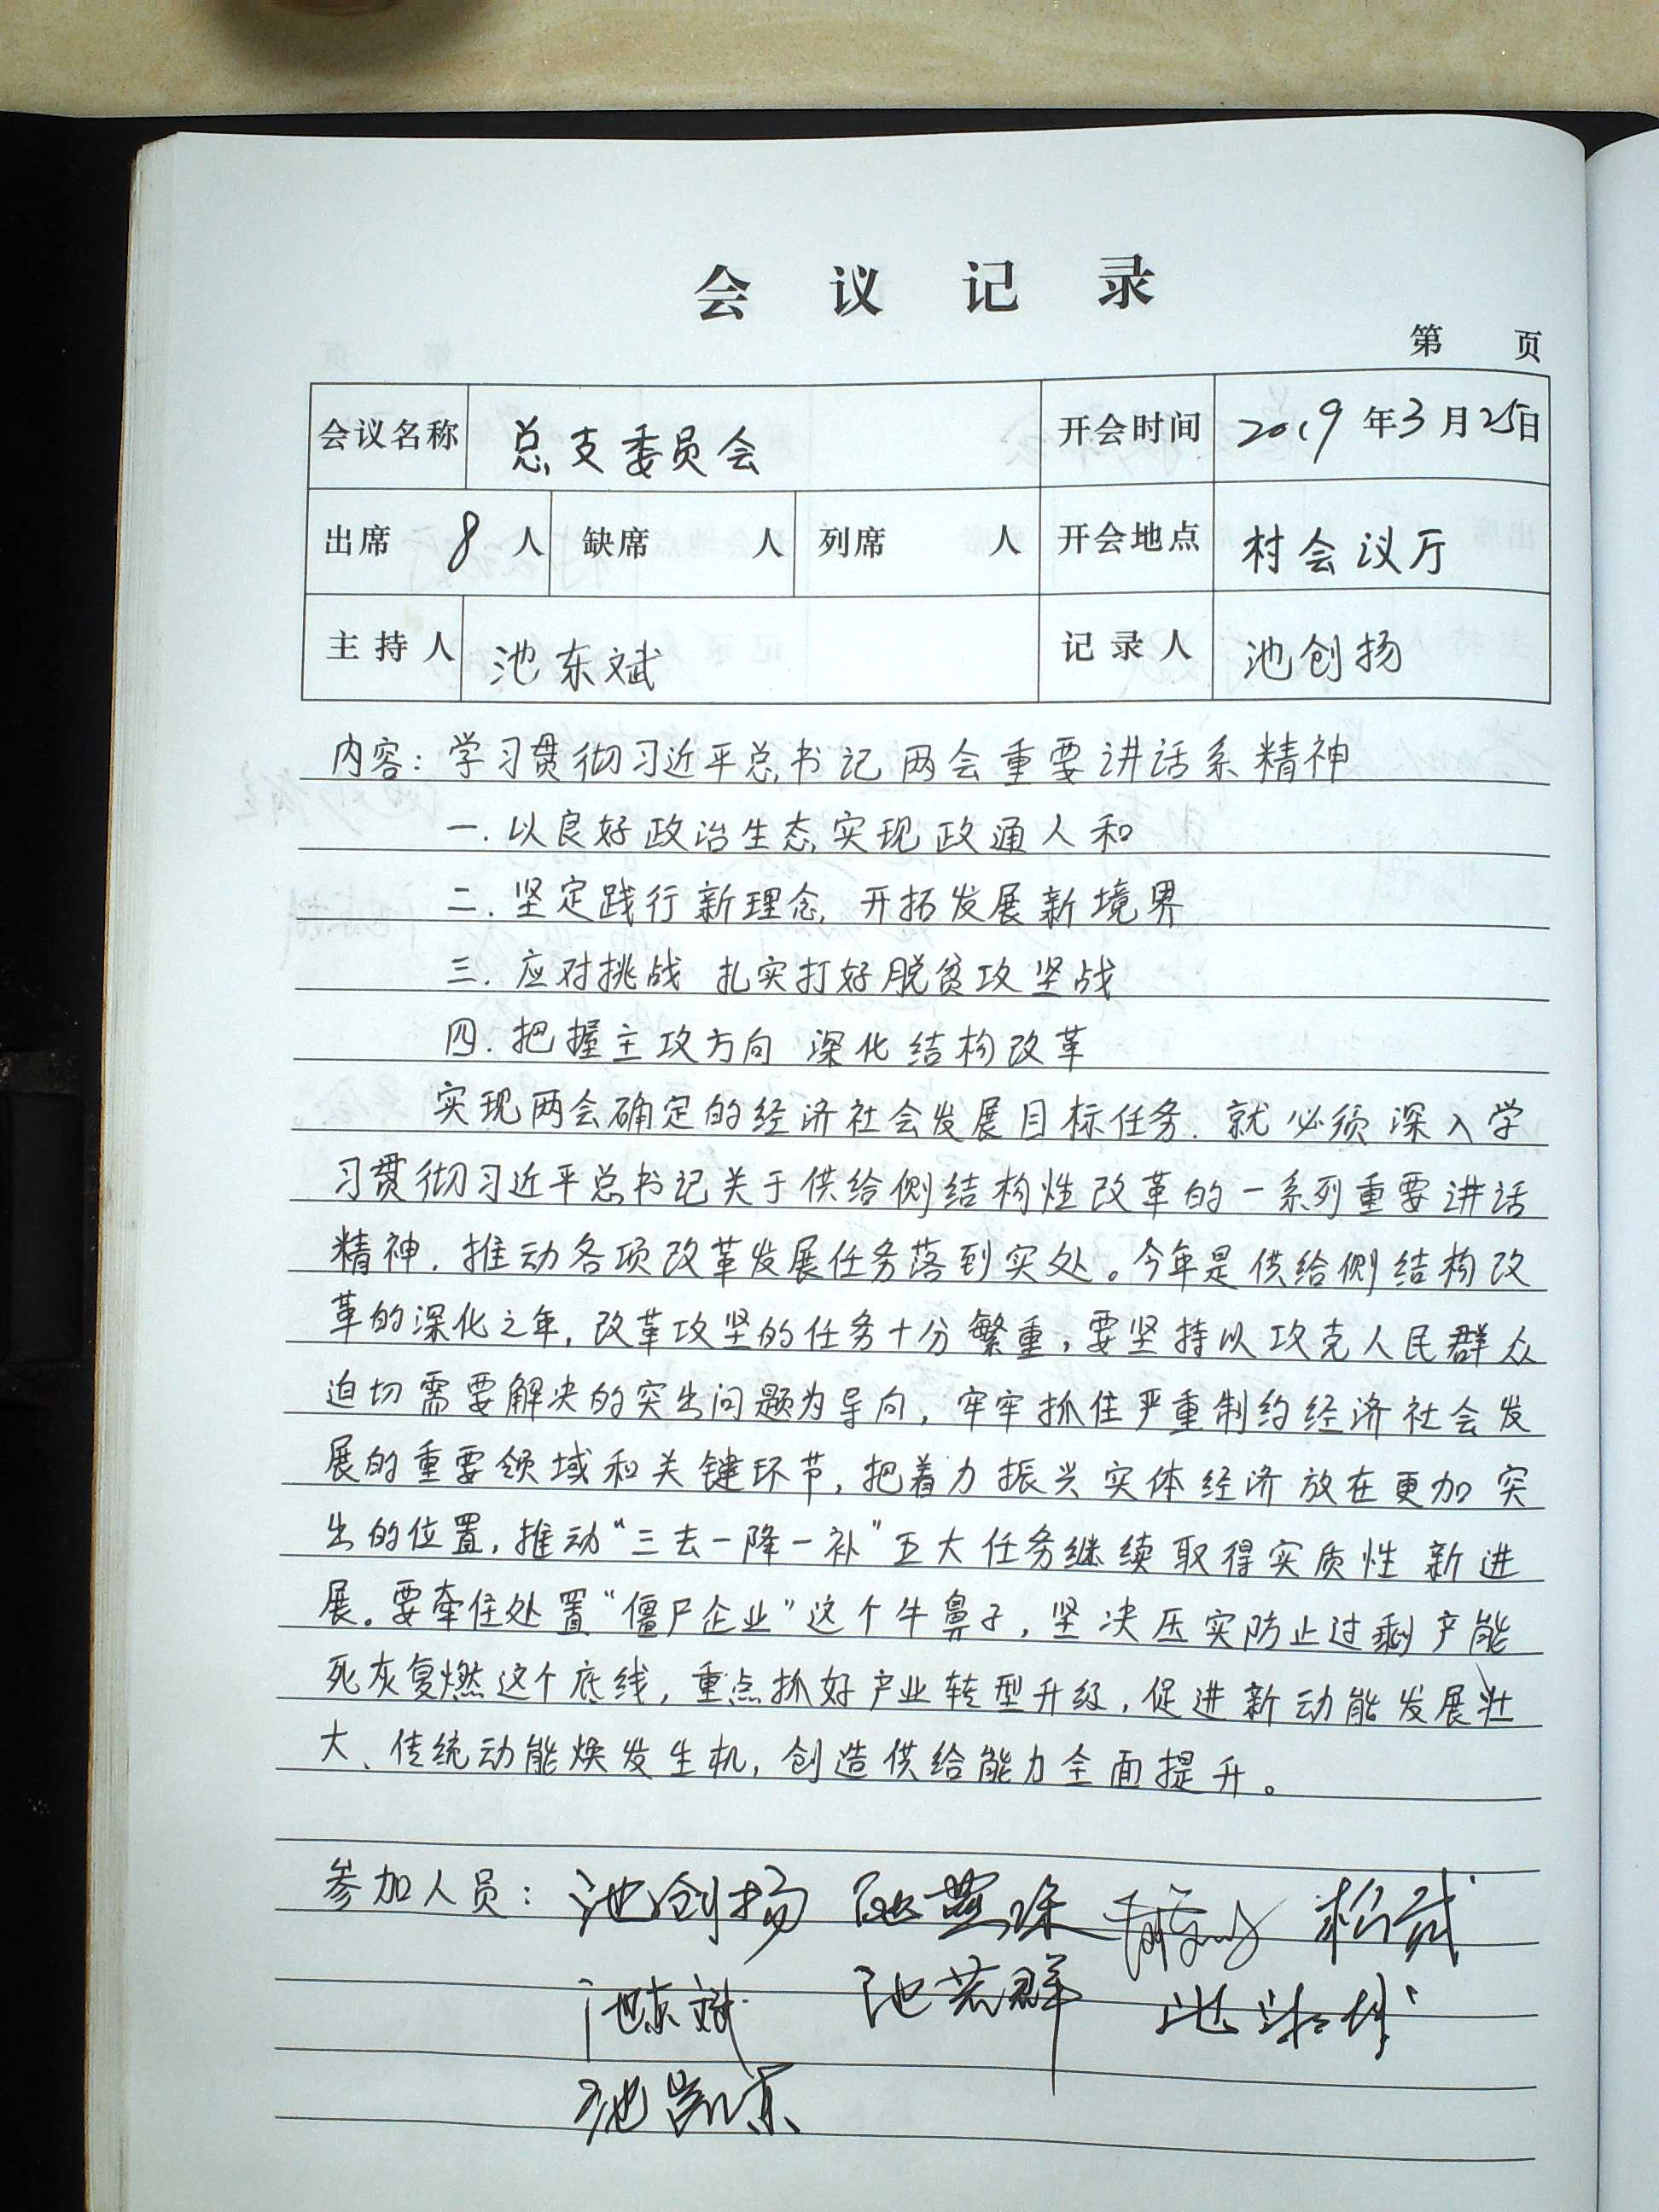 会议记录
第 页
会议名称 总支委员会 开会时间 2019年3月25日
出席 8 人 缺席 人 列席 人 开会地点 村会议厅
主持人 池东斌 记录人 池创扬
内容：学习贯彻习近平总书记两会重要讲话系精神
一.以良好政治生态实现政通人和
二.坚定践行新理念,开拓发展新境界
三.应对挑战 扎实打好脱贫攻坚战
四.把握主攻方向 深化结构改革
实现两会确定的经济社会发展目标任务.就必须深入学
习贯彻习近平总书记关于供给侧结构性改革的一系列重要讲话
精神,推动各项改革发展任务落到实处。今年是供给侧结构改
革的深化之年,改革攻坚的任务十分繁重,要坚持以攻克人民群众
迫切需要解决的突出问题为导向,牢牢抓住严重制约经济社会发
展的重要领域和关键环节,把着力振兴实体经济放在更加突
出的位置,推动“三去一降一补”五大任务继续取得实质性新进
展。要牵住处置“僵尸企业”这个牛鼻子,坚决压实防止过剩产能
死灰复燃这个底线,重点抓好产业转型升级,促进新动能发展壮
大、传统动能焕发生机,创造供给能力全面提升。
参加人员：池创扬
池东斌